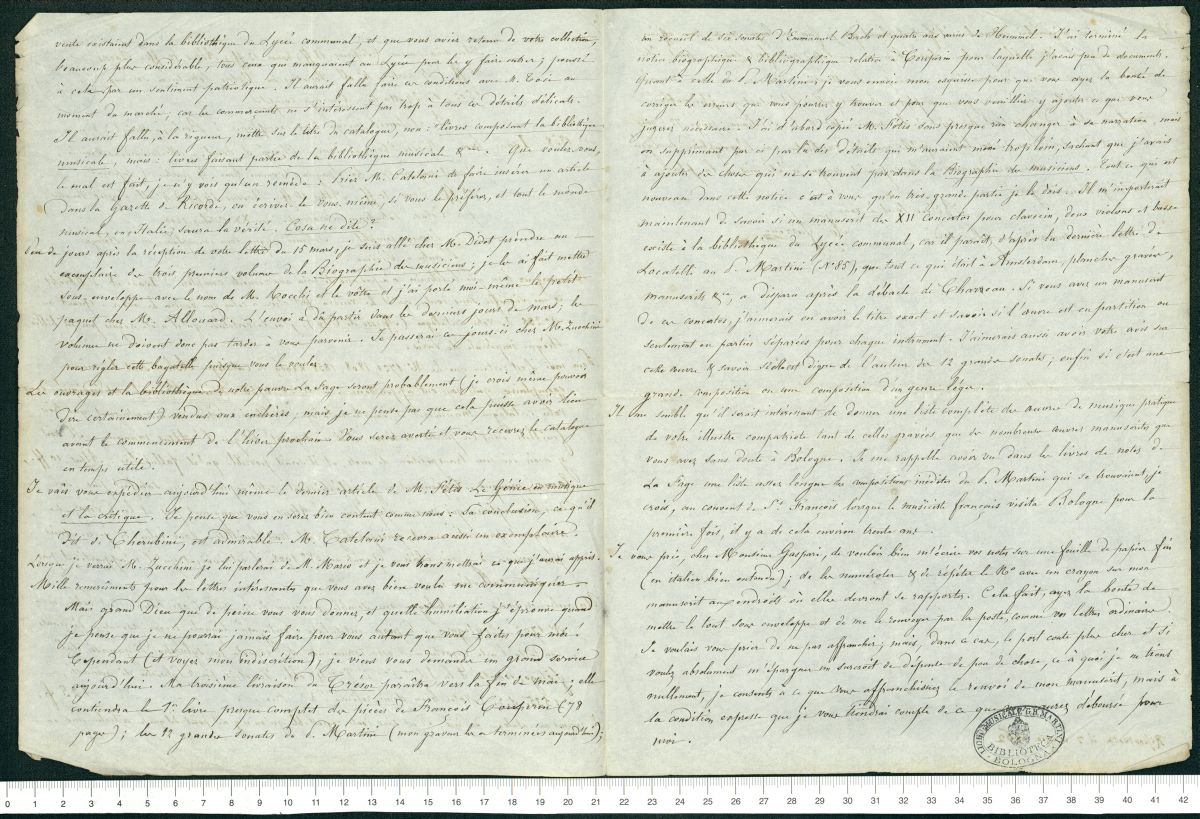 vente existaient dans la bibliothèque du Lycée communal, et que vous aviez retenu de votre collection,
beaucoup plus considérable, tous ceux qui manquaient au Lycée pour les y faire entrer; poussé
à cela par un sentiment patriotique. Il aurait fallu faire ces conditions avec M. Toli au
moment du marché, car les commerçants ne s'intéressent pas trop à tous ces détails délicats.
Il aurait fallu, à la rigueur, mettre sur le titre du catalogue, non: livres composant la bibliothèque
musicale, mais: livres faisant partie de la bibliothèque musicale &. Que voulez-vous,
le mal est fait, je n'y vois qu'un remède: priez M. Catelani de faire insérer un article
dans la Gazette de Ricordi, ou écrivez le vous même, si vous le préférez, et tout le monde
musical, en Italie, saura la vérité. Cosa ne dite?
Peu de jours après la réception de votre lettre du 15 mars, je suis allé chez M. Didot prendre un
exemplaire des trois premiers volumes de la Biographie des musiciens; je les ai fait mettre
sous enveloppe avec le nom de M. Rocchi et le vôtre et j'ai porté moi-même le petit
paquet chez M. Allouard. L'envoi a dû partir dans les derniers jours de mars; les
volumes ne doivent donc pas tarder à vous parvenir. Je passerai ces jours-ci chez M. Lucchini
pour régler cette bagatelle puisque vous le voulez.
Les ouvrages et la bibliothèque de notre pauvre La Fage seront probablement (je crois même pouvoir
dire certainement) vendus aux enchères, mais je ne pense pas que cela puisse avoir lieu
avant le commencement de l'hiver prochain. Vous serez averti et vous recevrez le catalogue
en temps utile.
Je vais vous expédier aujourd'hui même le dernier article de M. Fétis Le Génie en musique
et la critique. Je pense que vous en serez bien content comme nous: Sa conclusion, ce qu'il
dit de Cherubini, est admirable. M. Catelani recevra aussi un exemplaire.
Lorsque je verrai M. Lucchini je lui parlerai de M. Mario et je vous transmettrai ce que j'aurai appris.
Mille remerciments pour les lettres intéressantes que vous avez bien voulu me communiquer.
Mais grand Dieu que de peine vous vous donnez, et quelle humiliation j'éprouve quand
je pense que je ne pourrai jamais faire pour vous autant que vous faites pour moi!
Cependant (et voyez mon indiscrétion), je viens vous demander un grand service
aujourd'hui. Ma troisième livraison du Trésor paraîtra vers la fin de mai; elle
contiendra le 1er livre presque complet des pièces de François Couperin (78
pages); les 12 grandes sonates du P. Martini (mon graveur les a terminées aujourd'hui);
un recueil de six sonates d'Emmanuel Bach et quatre airs variés de Hummel. J'ai terminé la
notice biographique & bibliographique relative à Couperin pour laquelle j'avais peu de documents.
Quant à celle du P. Martini, je vous envoie mon esquisse pour que vous ayez la bonté de
corriger les erreurs que vous pourrez y trouver et pour que vous veuilliez y ajouter ce que vous
jugerez nécessaire. J'ai d'abord copié M. Fétis sans presque rien changer à sa narration, mais
en supprimant par ci par là des détails qui m'auraient mené trop loin, sachant que j'avais
à ajouter des choses qui ne se trouvent pas dans la Biographie des musiciens. Tout ce qui est
nouveau dans cette notice c'est à vous qu'en très grande partie je le dois. Il m'importerait
maintenant de savoir si un manuscrit des XII Concertos pour clavecin, deux violons et basse
existe à la bibliothèque du Lycée communal, car il paraît, d'après la dernière lettre de
Locatelli au P. Martini (No 85), que tout ce qui était à Amsterdam, planches gravées,
manuscrits &, a disparu après la débacle de Charreau. Si vous avez un manuscrit
de ces concertos, j'aimerais en avoir le titre exact et savoir si l'œuvre est en partition ou
seulement en parties séparées pour chaque instrument. J'aimerais aussi avoir votre avis sur
cette œuvre & savoir si elle est digne de l'auteur des 12 grandes sonates; enfin si c'est une
grande composition ou une composition d'un genre léger.
Il me semble qu'il serait intéressant de donner une liste complète des œuvres de musique pratique
de votre illustre compatriote tant de celles gravées que des nombreuses œuvres manuscrites que
vous avez sans doute à Bologne. Je me rappelle avoir vu dans les livres de notes de
La Fage une liste assez longue des compositions inédites du P. Martini qui se trouvaient, je
crois, au couvent de St François lorsque le musiciste français visita Bologne pour la
première fois, il y a de cela environ trente ans.
Je vous prie, cher Monsieur Gaspari, de vouloir bien m'écrire vos notes sur une feuille de papier fin
(en italien bien entendu); de les numéroter & de répéter le No avec un crayon sur mon
manuscrit aux endroits où elles devront se rapporter. Cela fait, ayez la bonté de
mettre le tout sous enveloppe et de me le renvoyer par la poste, comme vos lettres ordinaires.
Je voulais vous prier de ne pas affranchir; mais, dans ce cas, le port coute plus cher et si
voulez absolument m'épargner un surcroît de dépense de peu de chose, ce à quoi je ne tiens
nullement, je consens à ce que vous affranchissiez le renvoi de mon manuscrit, mais à
la condition expresse que je vous tiendrai compte de ce que aurez déboursé pour
moi.
CIV. MUSICALE G.B. MARTINI
BIBLIOTECA
BOLOGNA
0 1 2 3 4 5 6 7 8 9 10 11 12 13 14 15 16 17 18 19 20 21 22 23 24 25 26 27 28 29 30 31 32 33 34 35 36 37 38 39 40 41 42